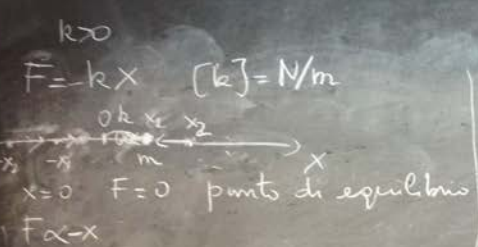 k>0
F=-kx [k]=N/m
0 k x₁ x₂
-x₂ -x₁ m x
x=0 F=0 punto di equilibrio
F∝-x